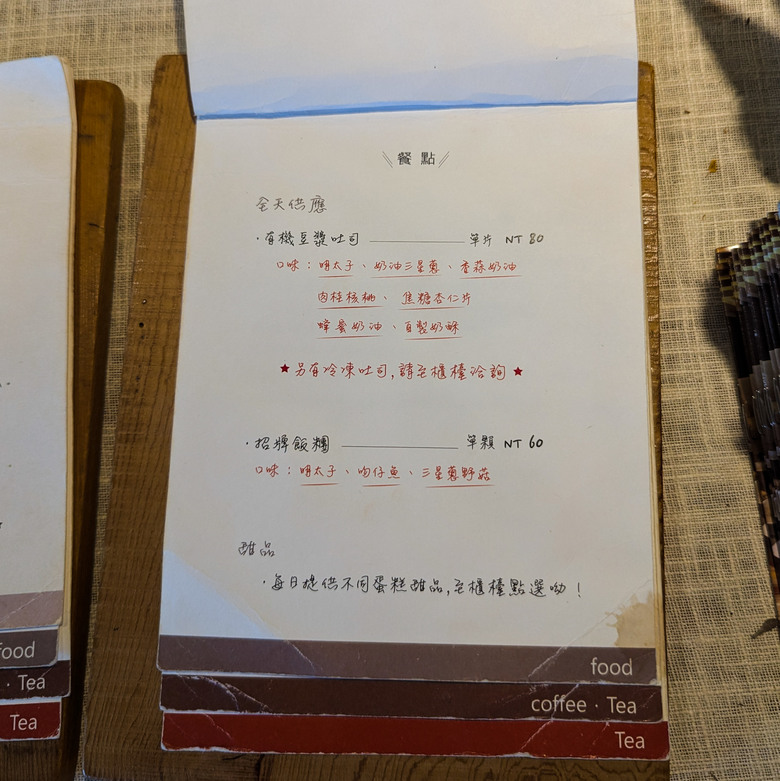 餐點
全天供應
·有機豆漿吐司 單片 NT 80
口味：明太子、奶油三星蔥、香蒜奶油
肉桂核桃、焦糖杏仁片
蜂蜜奶油、自製奶酥
★另有冷凍吐司,請至櫃檯洽詢★
·招牌飯糰 單顆 NT 60
口味：明太子、吻仔魚、三星蔥野菇
甜品
·每日提供不同蛋糕甜品,至櫃檯點選呦!
food
coffee · Tea
Tea
food
· Tea
Tea